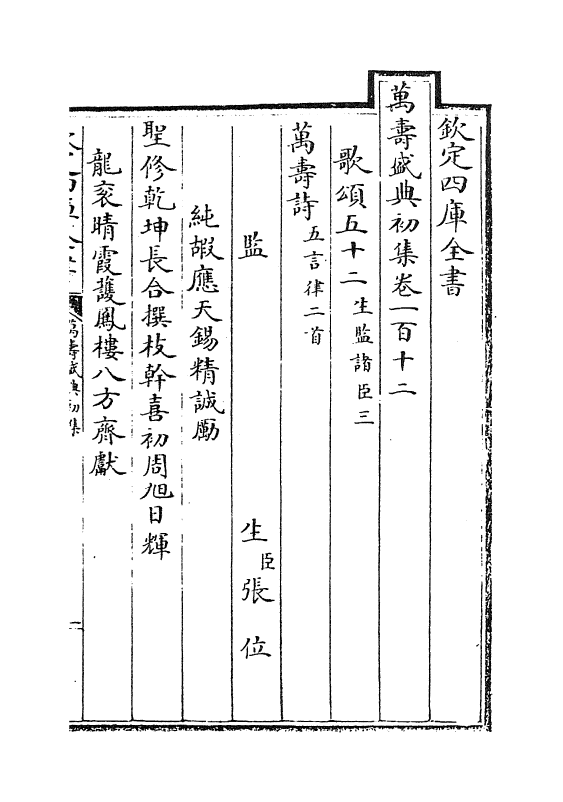 欽定四庫全書
萬壽盛典初集卷一百十二
歌頌五十二生監諸臣三
萬壽詩五言律二首
監生臣張位
純嘏應天錫精誠勵
聖修乾坤長合撰枝幹喜初周旭日輝
龍衮晴霞護鳳樓八方齊獻
萬壽盛典初集
一